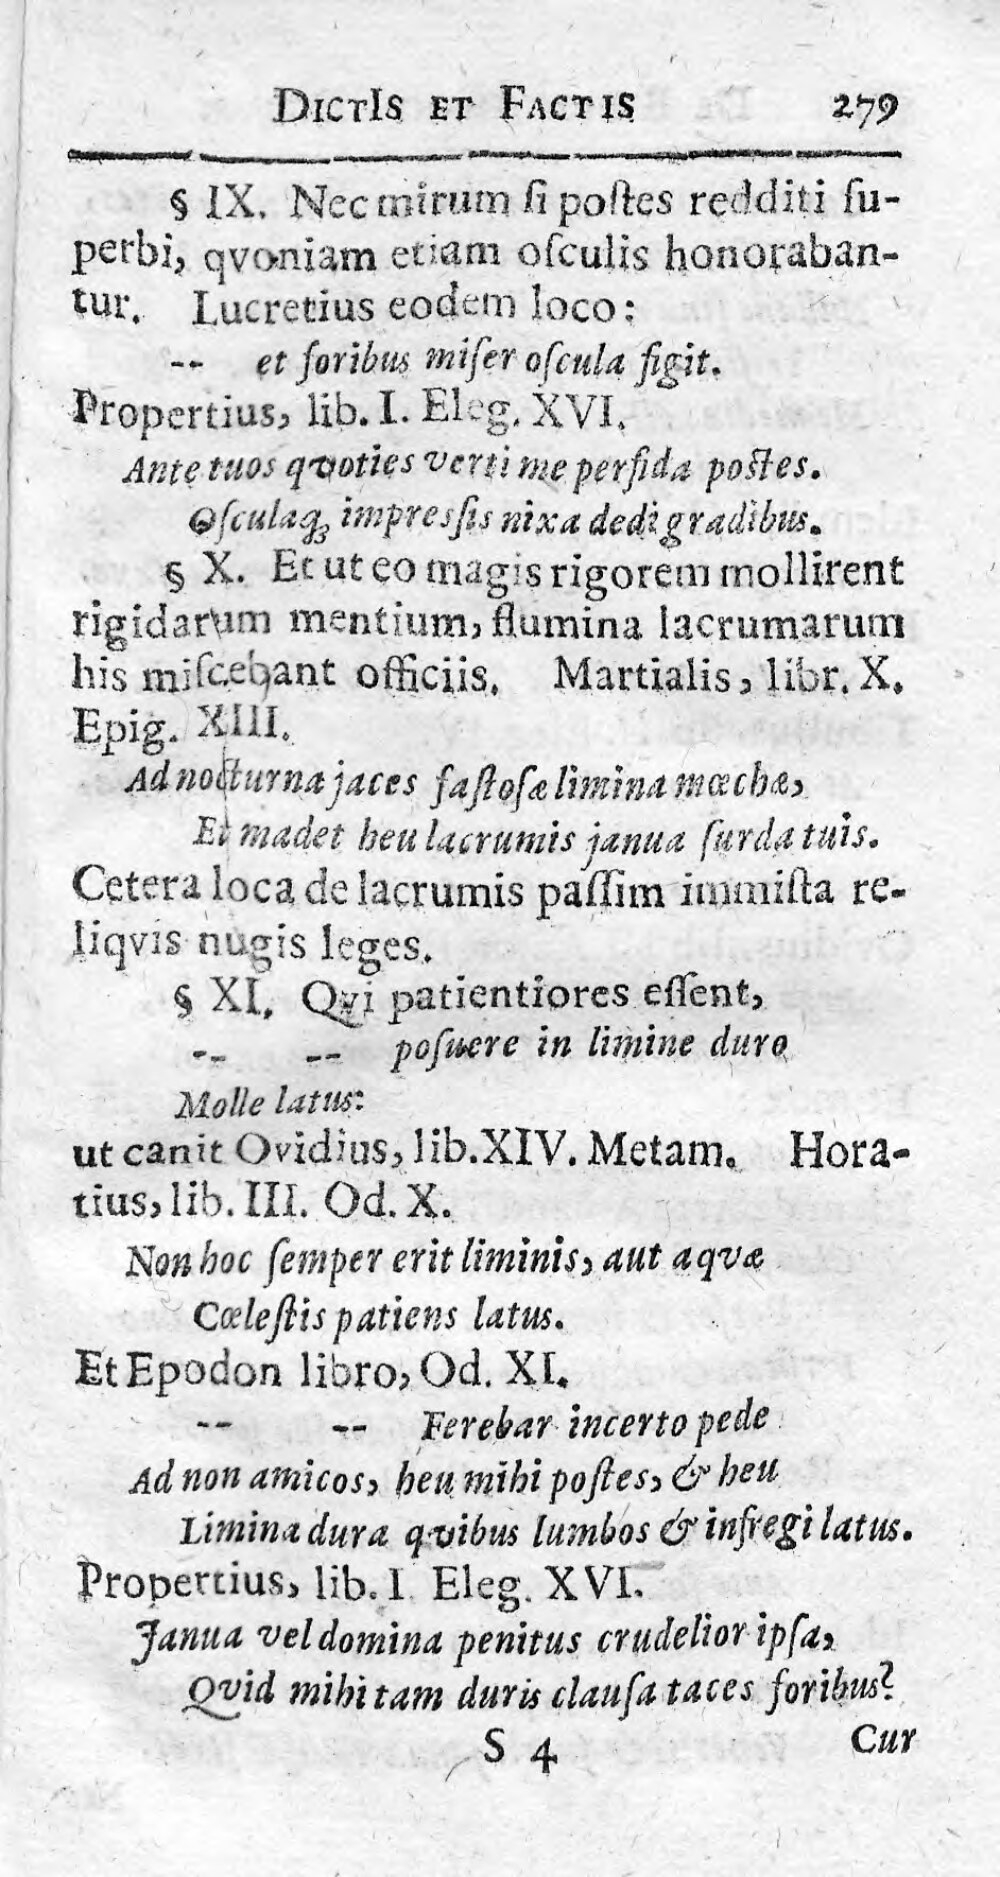 DICTIS ET FACTIS 279
§ IX. Nec mirum ſi poſtes redditi ſu-
perbi, qvoniam etiam oſculis honoraban-
tur. Lucretius eodem loco:
-- et foribus miſer oſcula figit.
Propertius, lib. I. Eleg. XVI.
Ante tuos qvoties verti me perfida poſtes.
Oſculaq; impreſſis nixa dedi gradibus.
§ X. Et ut eo magis rigorem mollirent
rigidarum mentium, flumina lacrumarum
his miſcebant officiis. Martialis, libr. X.
Epig. XIII.
Ad nocturna jaces faſtoſæ limina mœchæ,
Et madet heu lacrumis janua ſurda tuis.
Cetera loca de lacrumis paſſim immiſta re-
liqvis nugis leges.
§ XI. Qvi patientiores eſſent,
-- -- poſuere in limine duro
Molle latus:
ut canit Ovidius, lib. XIV. Metam. Hora-
tius, lib. III. Od. X.
Non hoc ſemper erit liminis, aut aqvæ
Cœleſtis patiens latus.
Et Epodon libro, Od. XI.
-- -- Ferebar incerto pede
Ad non amicos, heu mihi poſtes, & heu
Limina dura qvibus lumbos & infregi latus.
Propertius, lib. I Eleg. XVI.
Janua vel domina penitus crudelior ipſa,
Qvid mihi tam duris clauſa taces foribus?
S 4 Cur